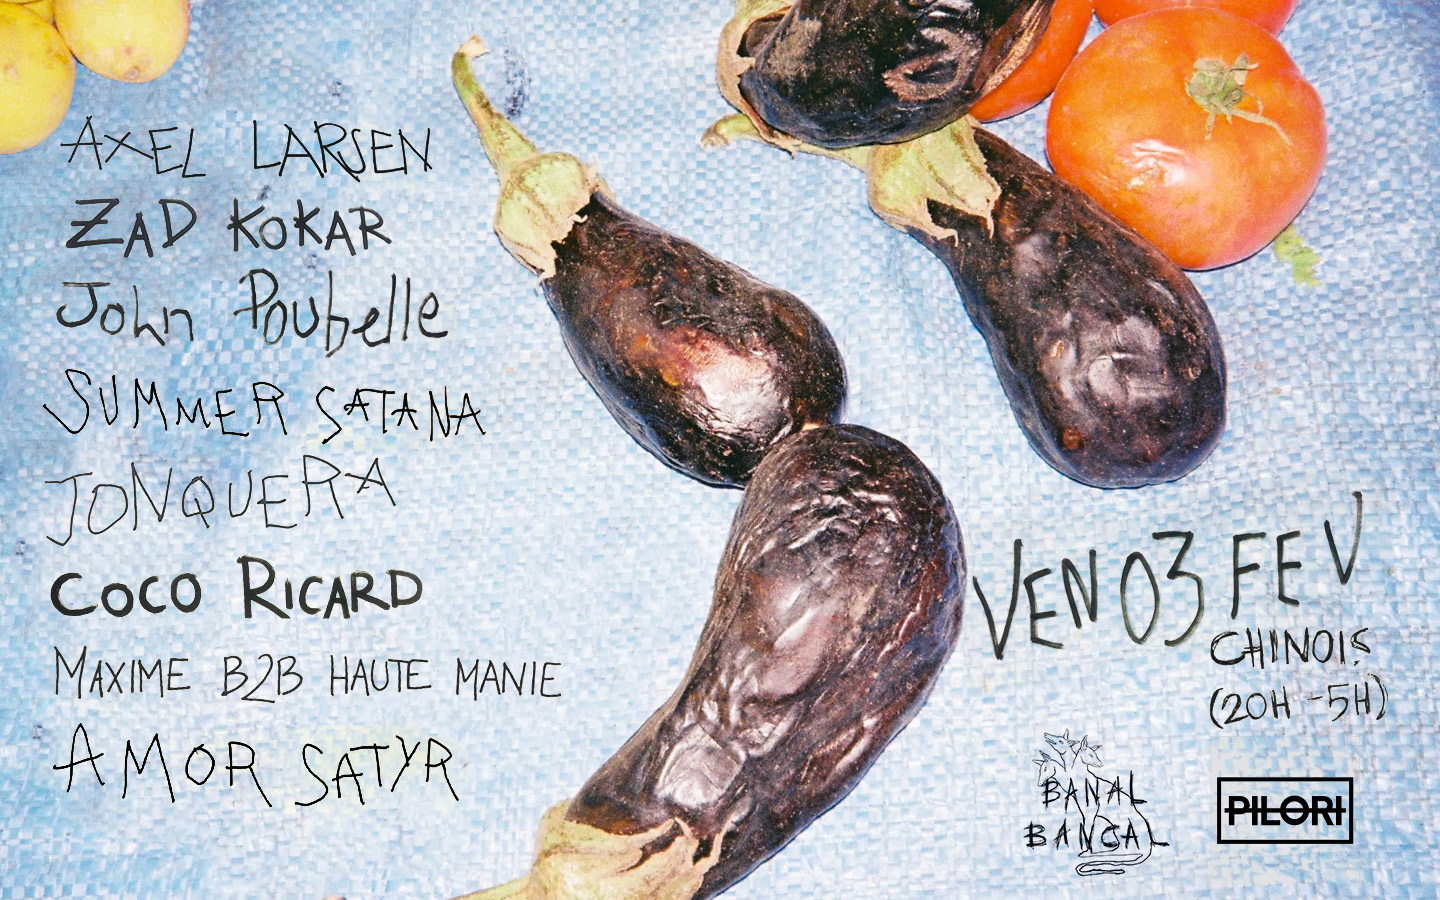 AXEL LARSEN
ZAD KOKAR
John Poubelle
SUMMER SATANA
JONQUERA
COCO RICARD
MAXIME B2B HAUTE MANIE
AMOR SATYR
VEN 03 FEV
CHINOIS
(20H - 5H)
BANAL
BANCAL
PILORI